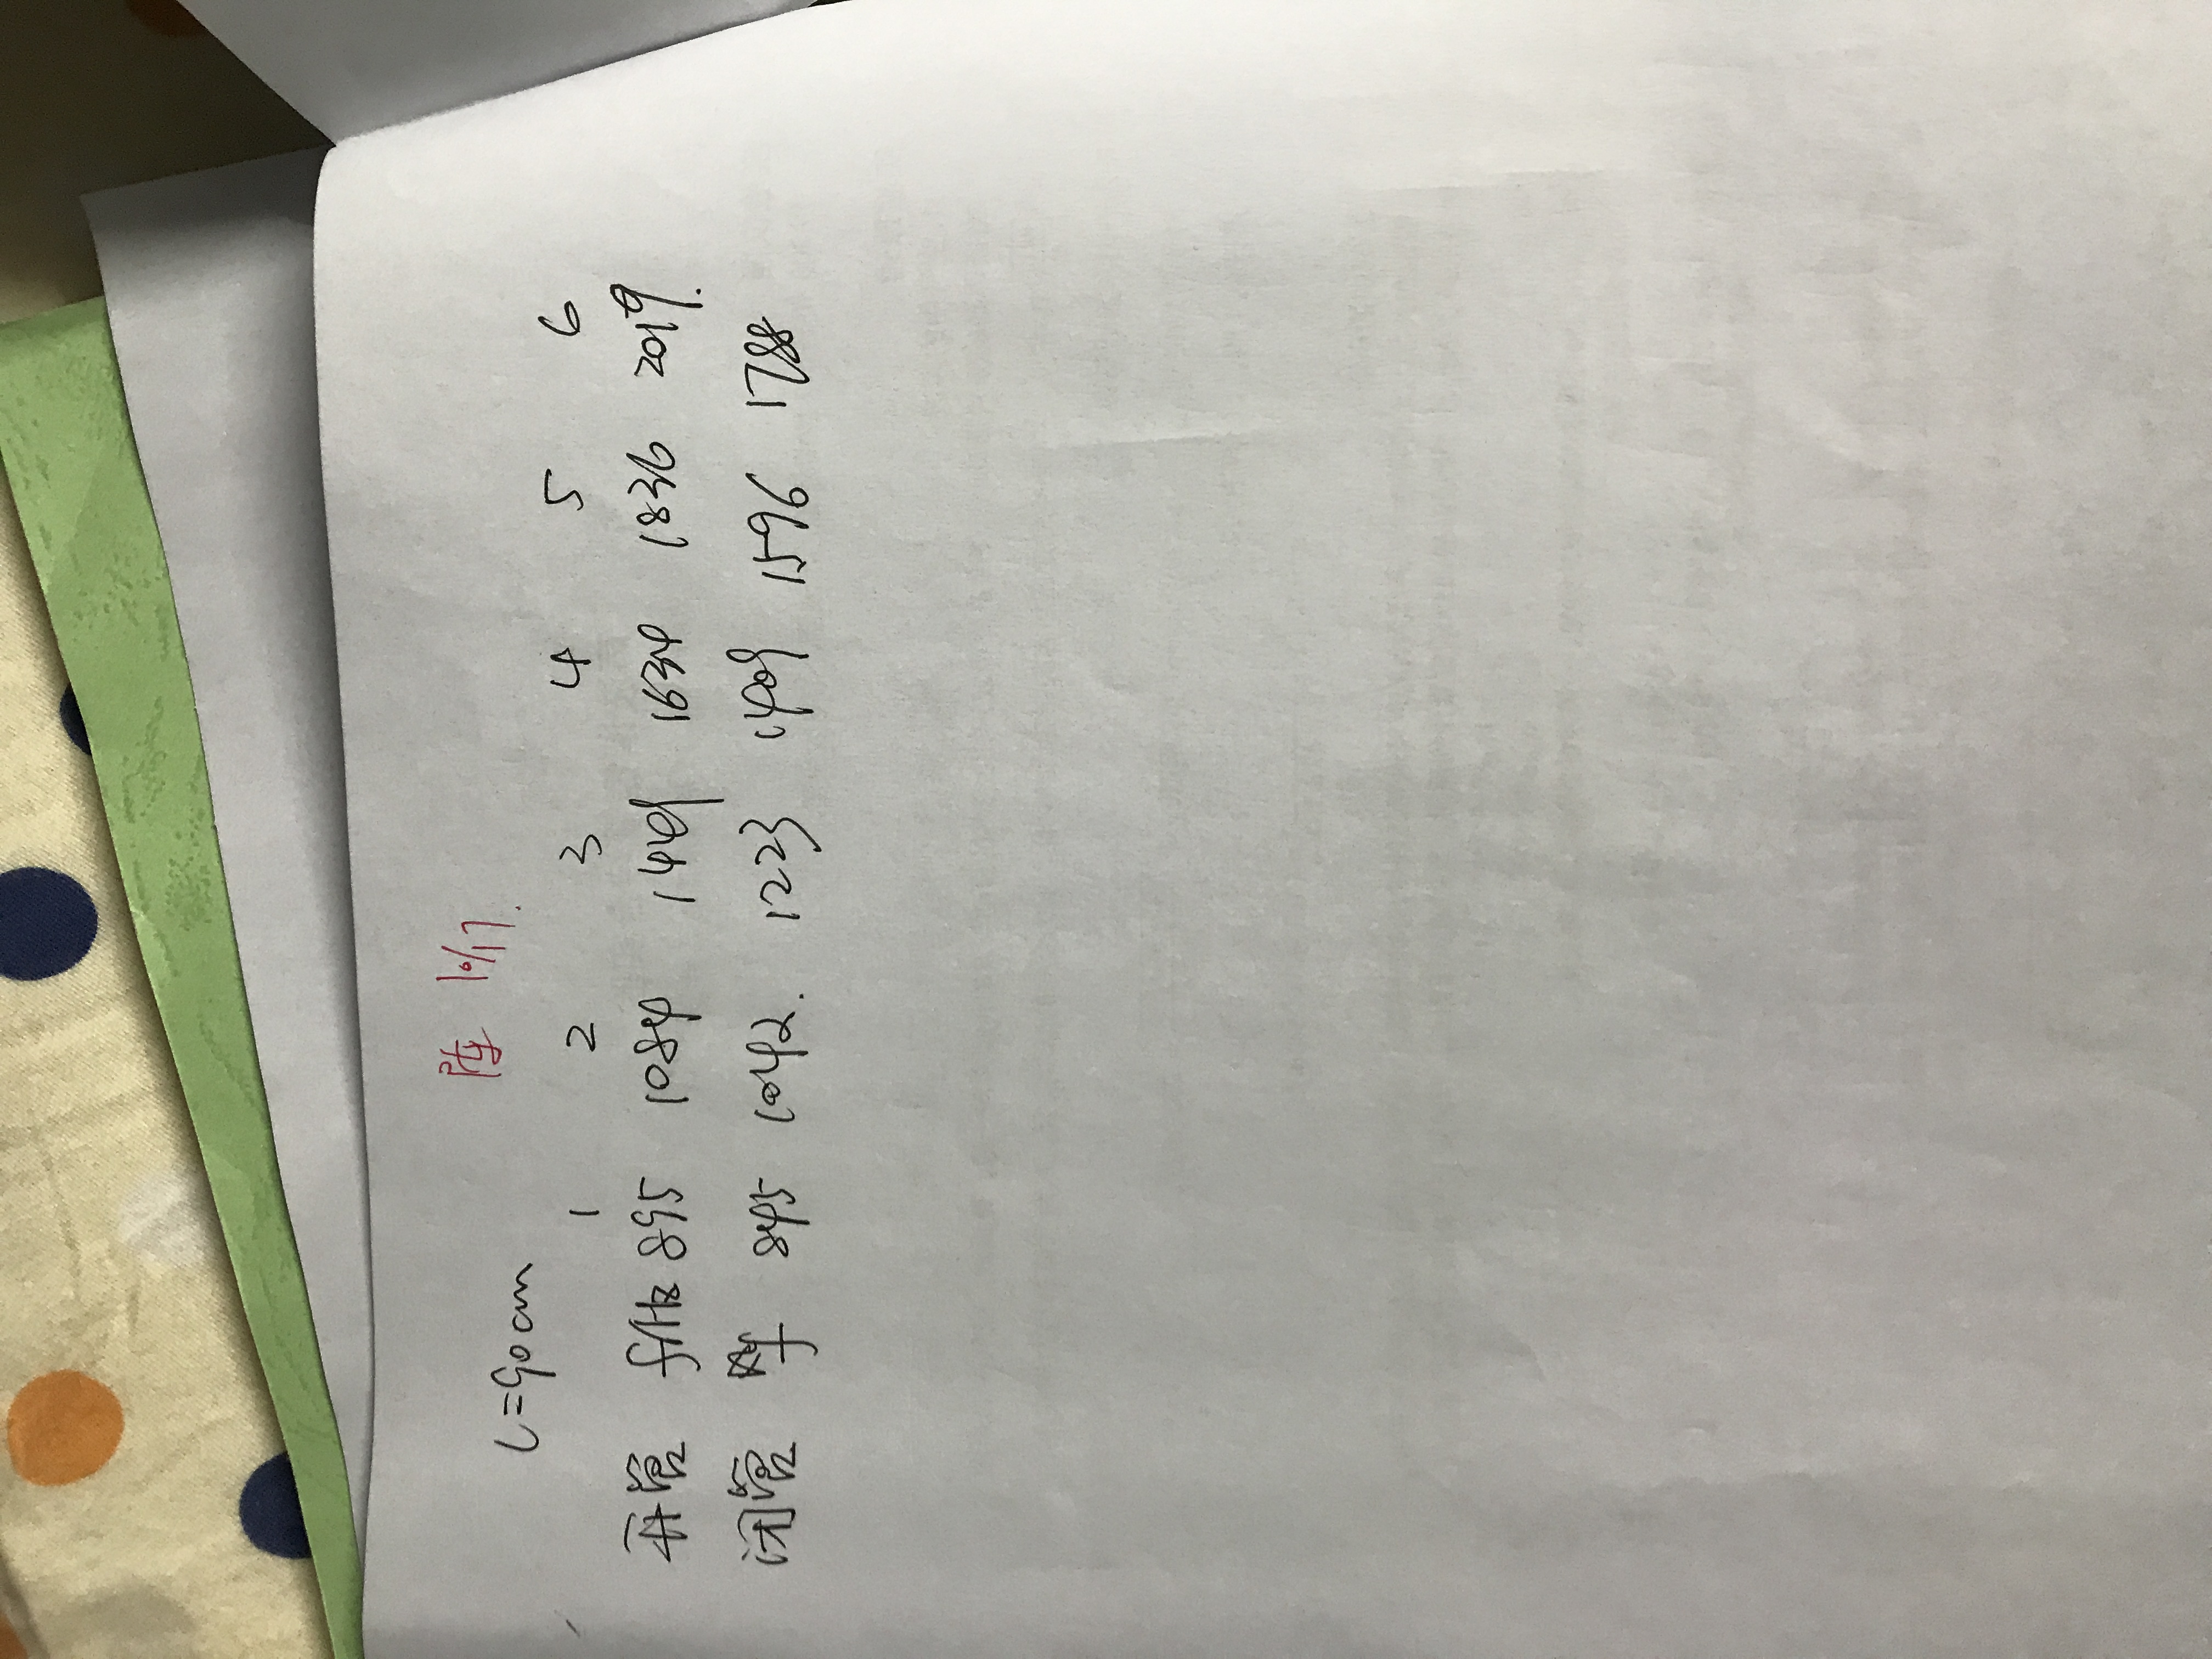 陈 10/17.
L=90cm
1 2 3 4 5 6
开管 f/Hz 895 1084 1449 1634 1836 2019.
闭管 f 845 1042. 1223 1409 1596 1788